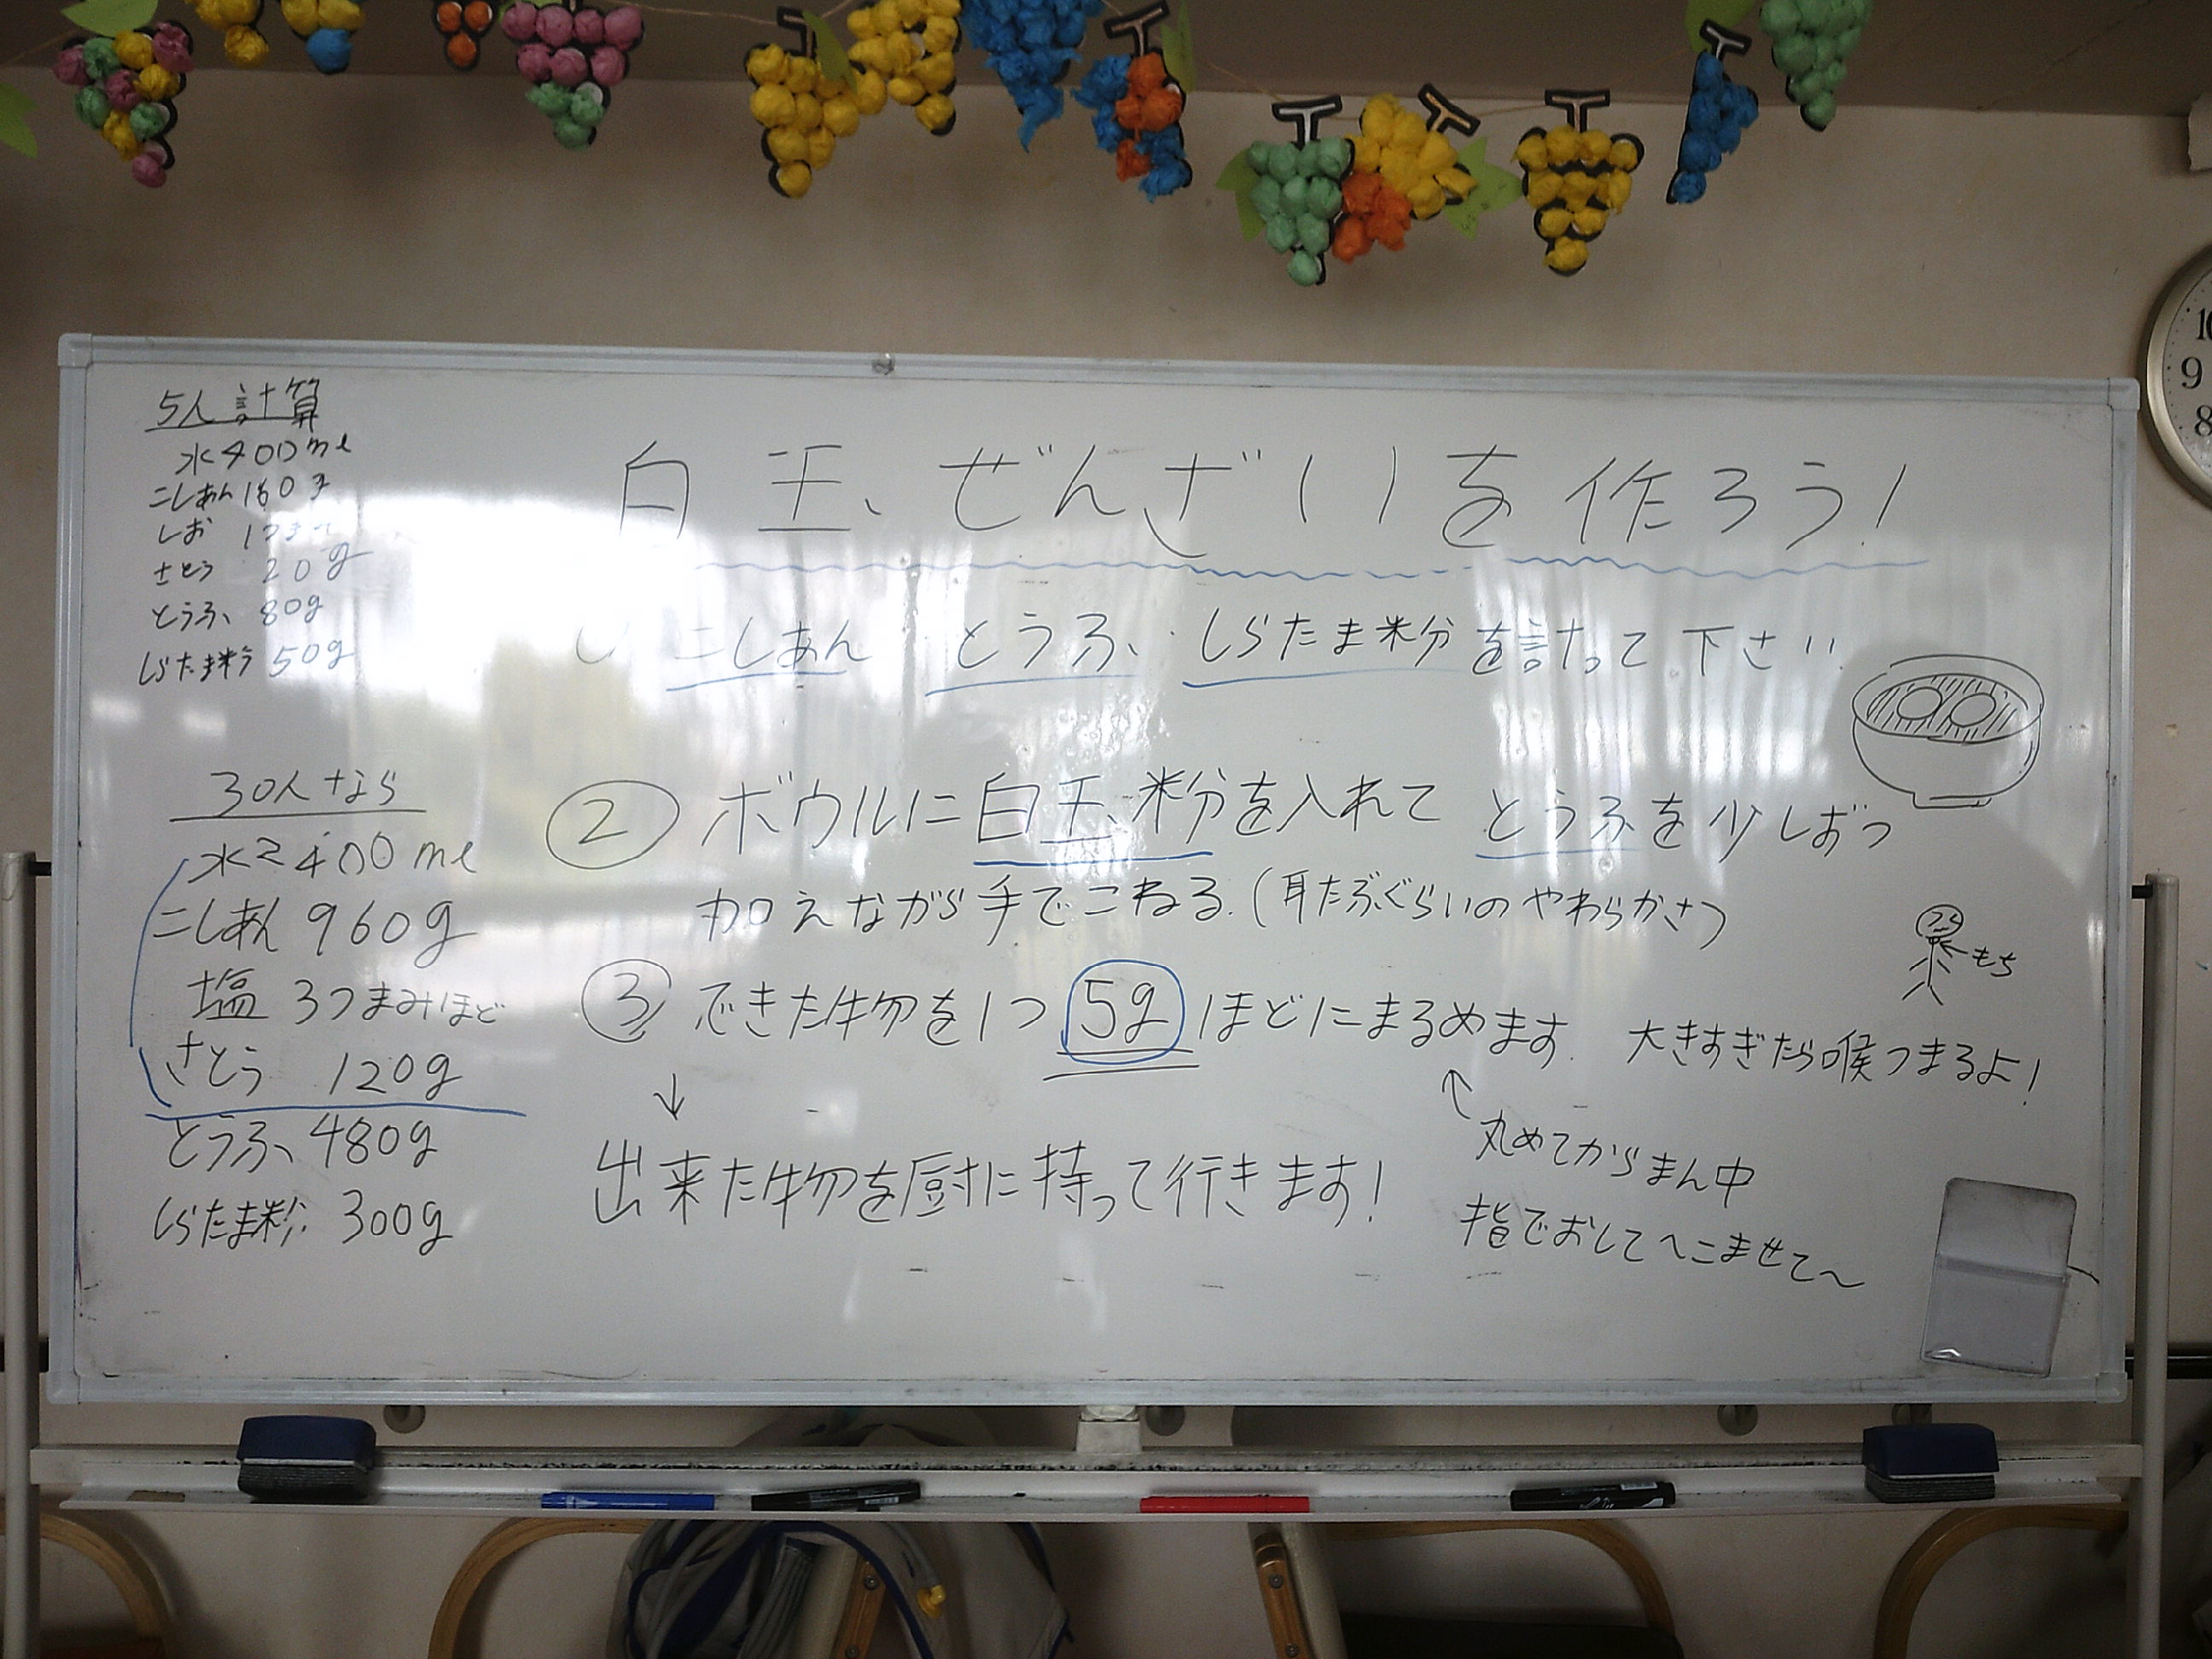 5人計算
水400ml
こしあん160g
しお 1つまみ
さとう 20g
とうふ 80g
しらたま粉 50g
30人なら
水2400ml
こしあん 960g
塩 3つまみほど
さとう 120g
とうふ 480g
しらたま粉 300g
白玉ぜんざいを作ろう!
こしあん とうふ しらたま粉を計って下さい.
② ボウルに白玉粉を入れて とうふを少しずつ
加えながら手でこねる.(耳たぶぐらいのやわらかさ)
③ できた物を1つ 5g ほどにまるめます.
大きすぎたら喉つまるよ!
←もち
↓
出来た物を厨に持って行きます!
↖
丸めてからまん中
指でおしてへこませて〜
10
9
8